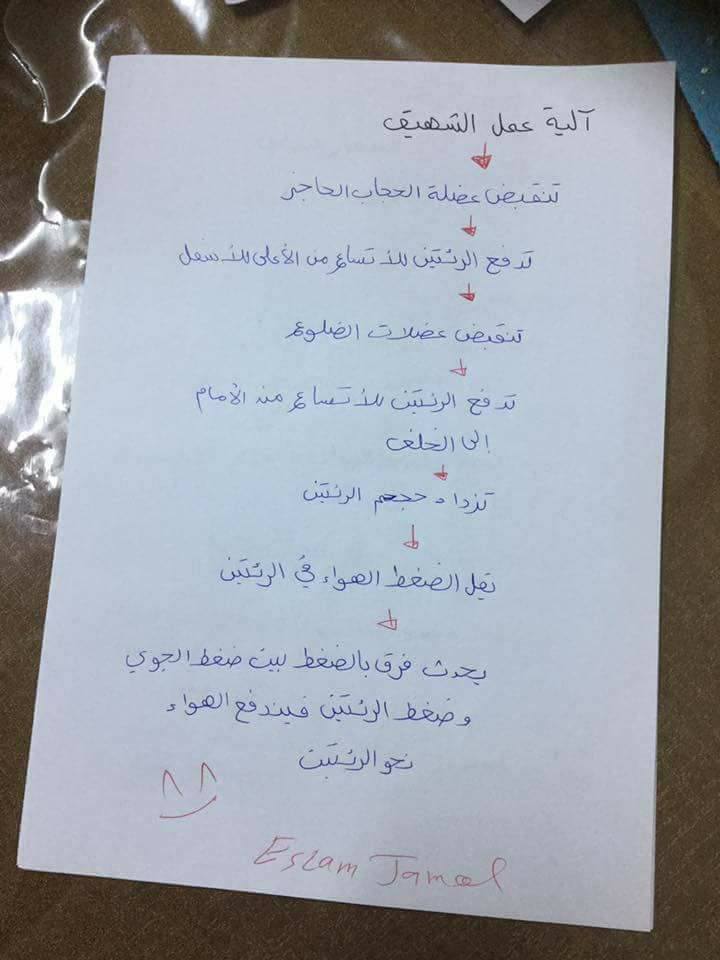 آلية عمل الشهيق
تنقبض عضلة الحجاب الحاجز
تدفع الرئتين للأتساع من الأعلى للأسفل
تنقبض عضلات الضلوع
تدفع الرئتين للأتساع من الأمام
إلى الخلف
تزداد حجم الرئتين
يقل الضغط الهواء في الرئتين
يحدث فرق بالضغط بين ضغط الجوي
وضغط الرئتين فيندفع الهواء
نحو الرئتين
Eslam Jamal